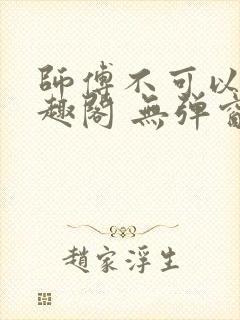 師傅不可以
趣閣 無彈窗
趙家浮生